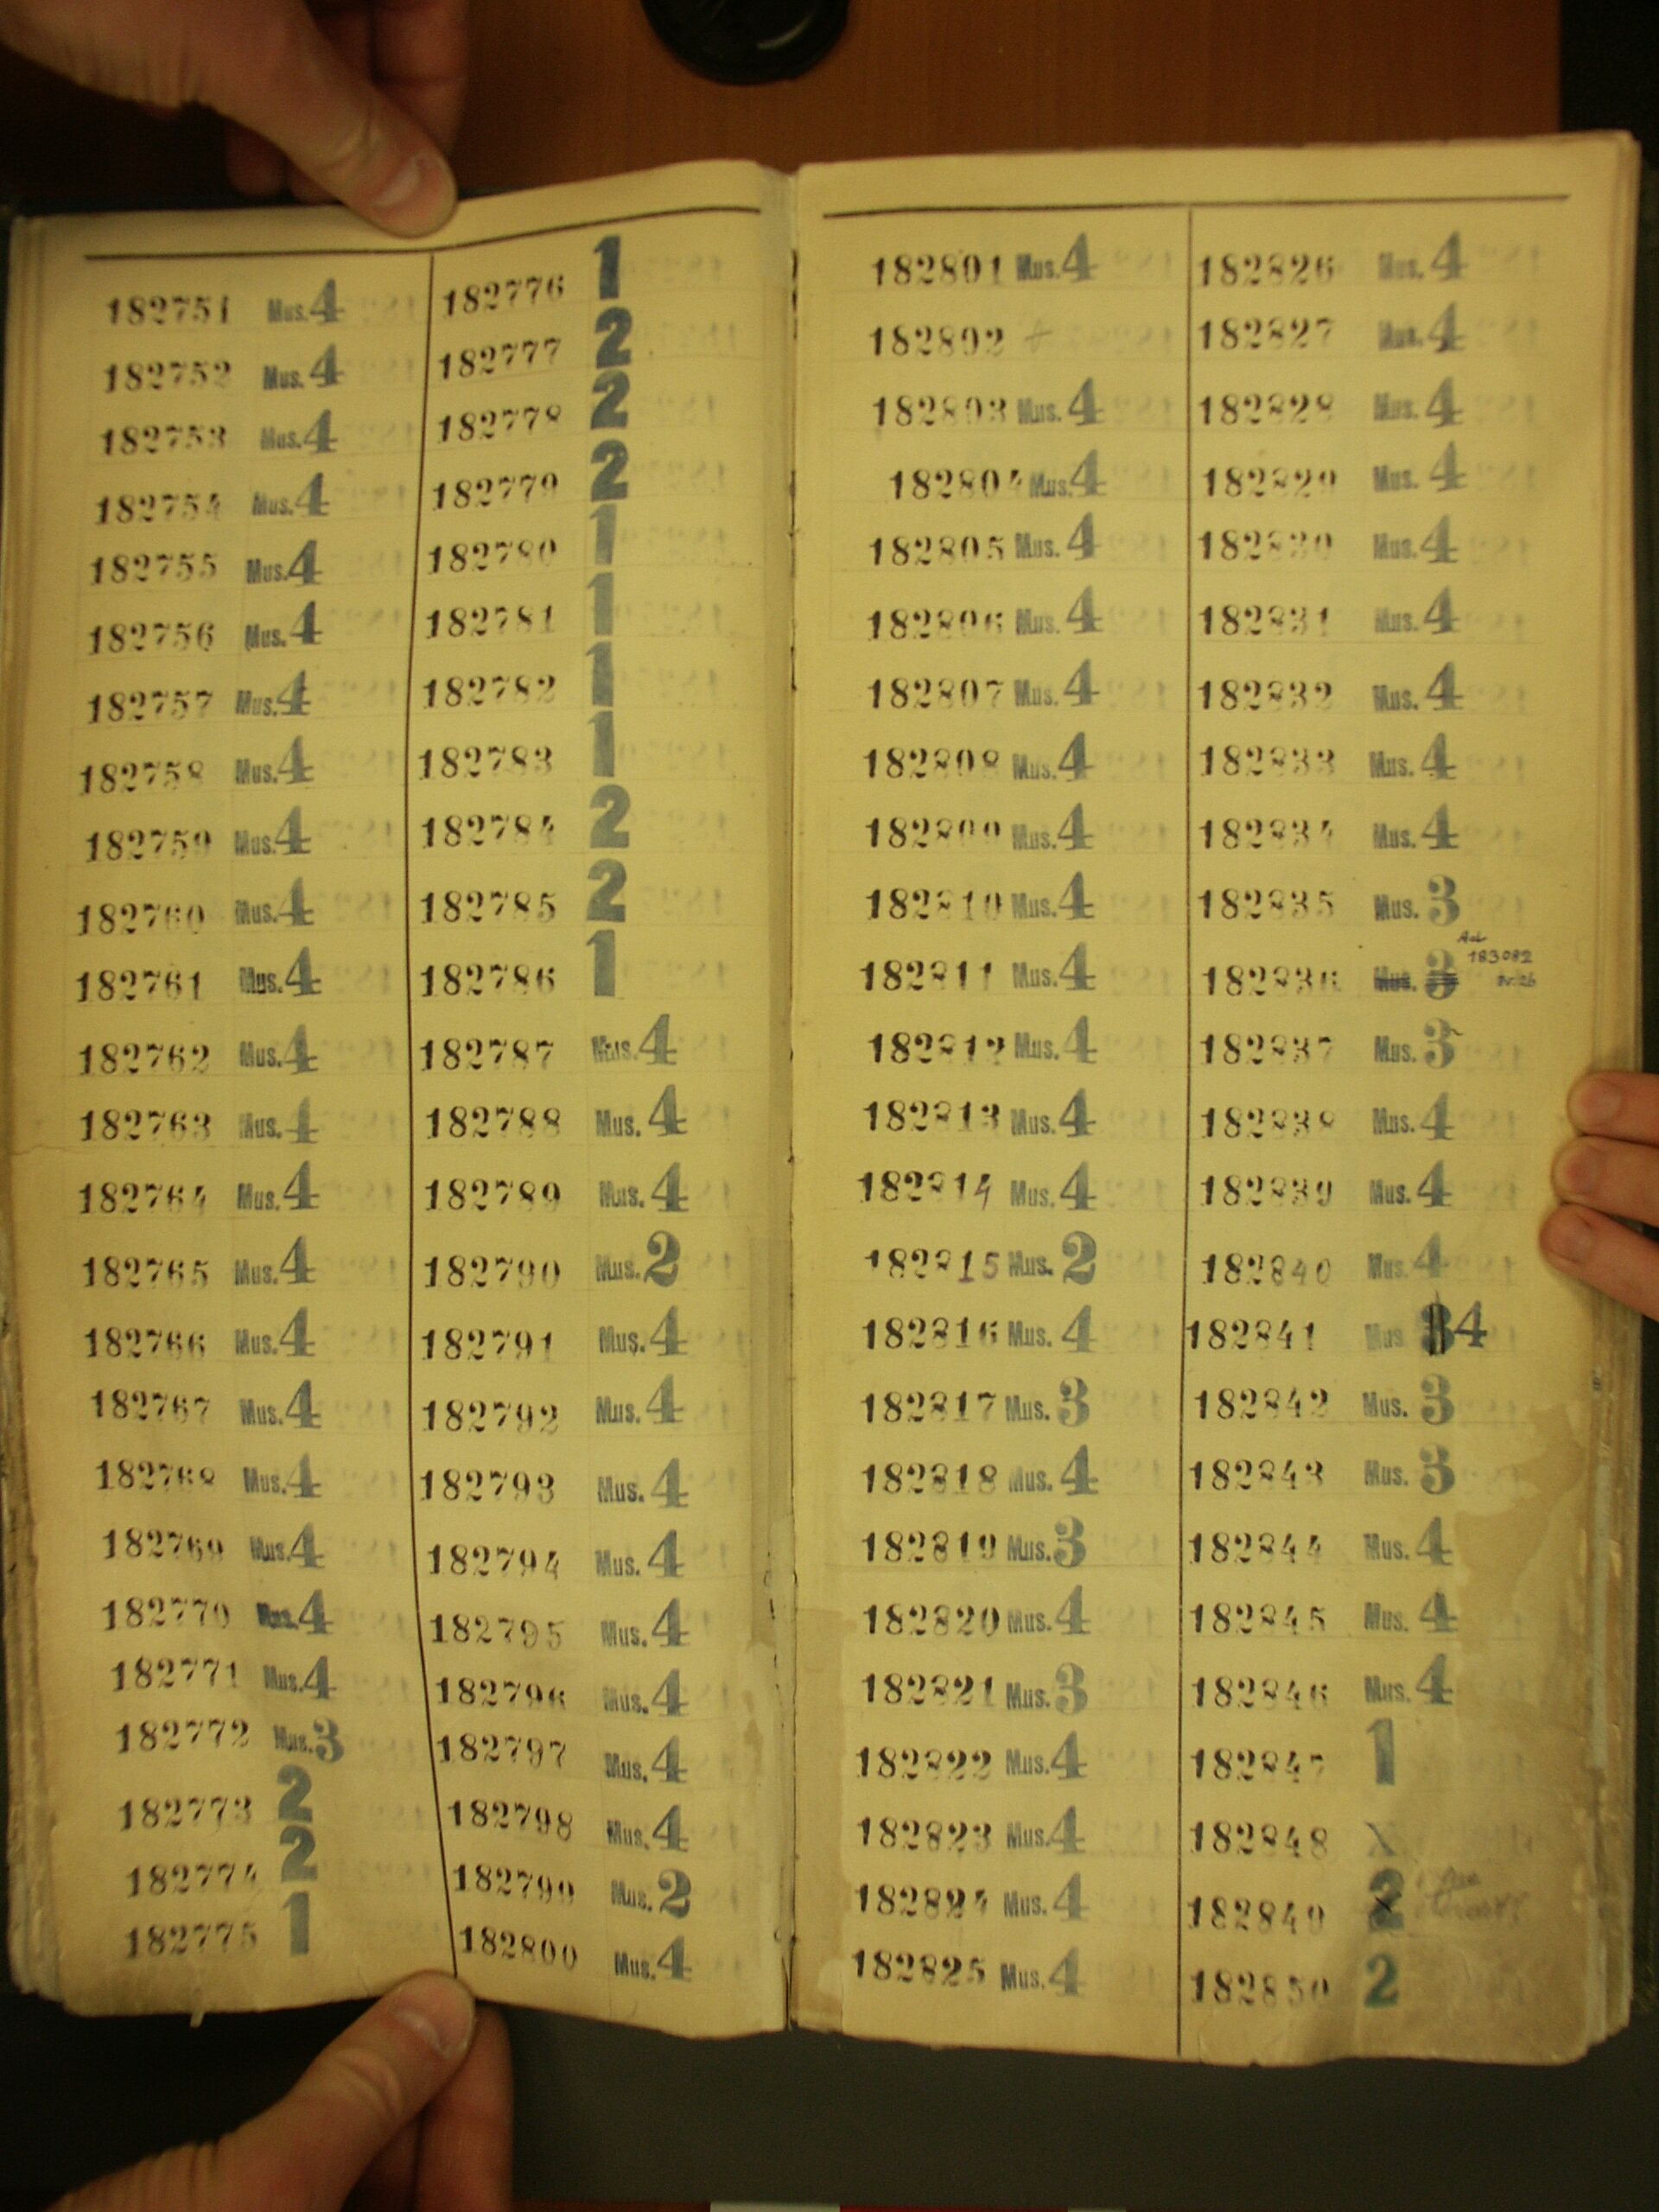 182751 Mus. 4
182752 Mus. 4
182753 Mus. 4
182754 Mus. 4
182755 Mus. 4
182756 Mus. 4
182757 Mus. 4
182758 Mus. 4
182759 Mus. 4
182760 Mus. 4
182761 Mus. 4
182762 Mus. 4
182763 Mus. 4
182764 Mus. 4
182765 Mus. 4
182766 Mus. 4
182767 Mus. 4
182768 Mus. 4
182769 Mus. 4
182770 Mus. 4
182771 Mus. 4
182772 Mus. 3
182773 2
182774 2
182775 1
182776 1
182777 2
182778 2
182779 2
182780 1
182781 1
182782 1
182783 1
182784 2
182785 2
182786 1
182787 Mus. 4
182788 Mus. 4
182789 Mus. 4
182790 Mus. 2
182791 Mus. 4
182792 Mus. 4
182793 Mus. 4
182794 Mus. 4
182795 Mus. 4
182796 Mus. 4
182797 Mus. 4
182798 Mus. 4
182799 Mus. 2
182800 Mus. 4
182801 Mus. 4
182802
182803 Mus. 4
182804 Mus. 4
182805 Mus. 4
182806 Mus. 4
182807 Mus. 4
182808 Mus. 4
182809 Mus. 4
182810 Mus. 4
182811 Mus. 4
182812 Mus. 4
182813 Mus. 4
182814 Mus. 4
182815 Mus. 2
182816 Mus. 4
182817 Mus. 3
182818 Mus. 4
182819 Mus. 3
182820 Mus. 4
182821 Mus. 3
182822 Mus. 4
182823 Mus. 4
182824 Mus. 4
182825 Mus. 4
182826 Mus. 4
182827 Mus. 4
182828 Mus. 4
182829 Mus. 4
182830 Mus. 4
182831 Mus. 4
182832 Mus. 4
182833 Mus. 4
182834 Mus. 4
182835 Mus. 3
182836 Mus. 3 183082
182837 Mus. 3
182838 Mus. 4
182839 Mus. 4
182840 Mus. 4
182841 Mus 3 4
182842 Mus. 3
182843 Mus. 3
182844 Mus. 4
182845 Mus. 4
182846 Mus. 4
182847 1
182848
182849 2
182850 2